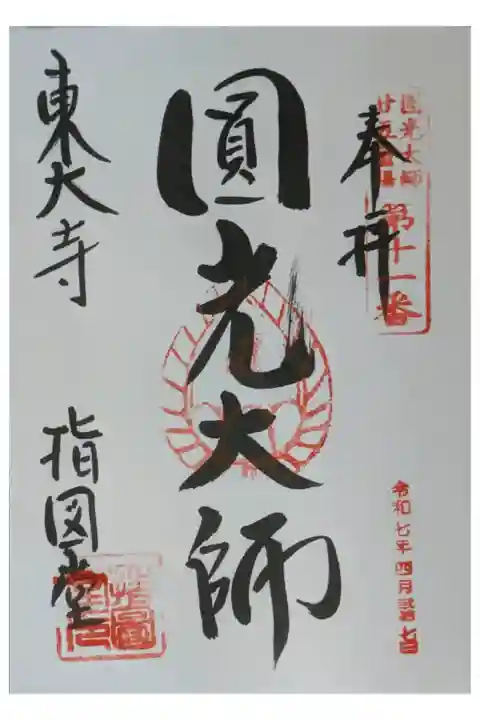 奉拝
圓光大師
廿五霊場
第十一番
圓光大師
東大寺
指図堂
令和七年四月